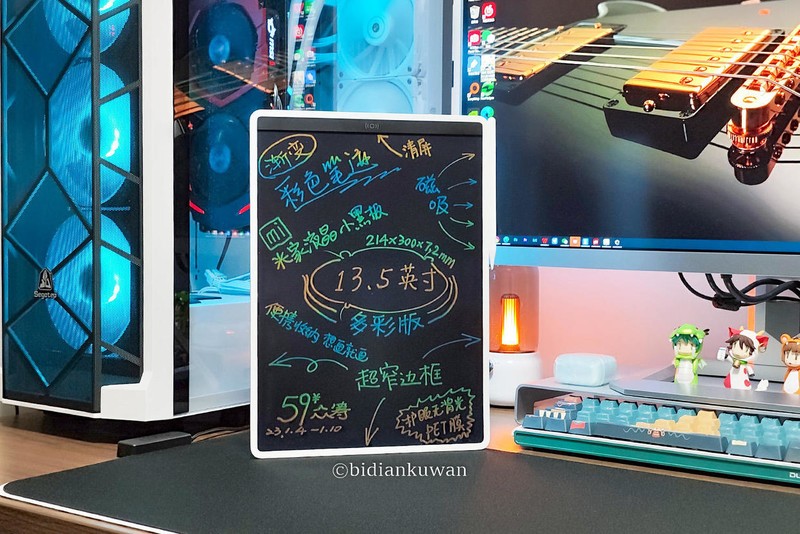 渐变
清屏
彩色笔迹
磁
吸
mi
米家液晶小黑板
214×300×7.2mm
13.5英寸
多彩版
便携收纳 想画就画
超窄边框
59¥
众筹
23.1.4—1.10
护眼无背光
PET膜
Segotep
©bidiankuwan